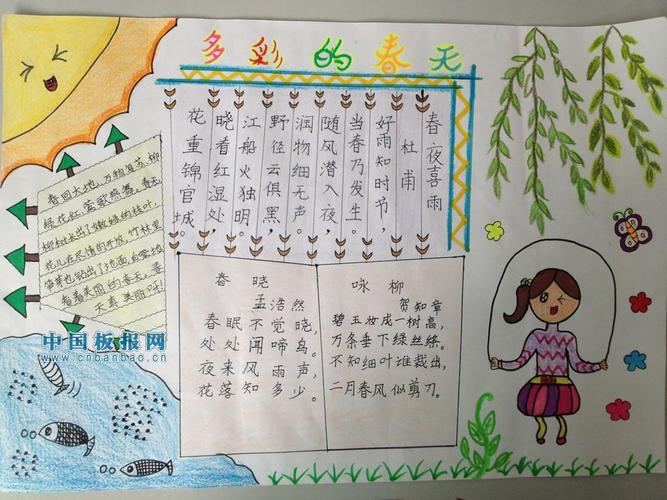 多彩的春天
春夜喜雨
杜甫
好雨知时节，
当春乃发生。
随风潜入夜，
润物细无声。
野径云俱黑，
江船火独明。
晓看红湿处，
花重锦官城。
春回大地，万物复苏，柳
绿花红，莺歌燕舞。春天，
柳树长出了嫩绿的枝叶，
花儿在尽情的开放，竹林里
笋芽也钻出了地面，地
看着美丽的春天。春
天真美丽呀！
春晓
孟浩然
春眠不觉晓，
处处闻啼鸟。
夜来风雨声，
花落知多少。
咏柳
贺知章
碧玉妆成一树高，
万条垂下绿丝绦。
不知细叶谁裁出，
二月春风似剪刀。
中国板报网
www.cnbanbao.cn